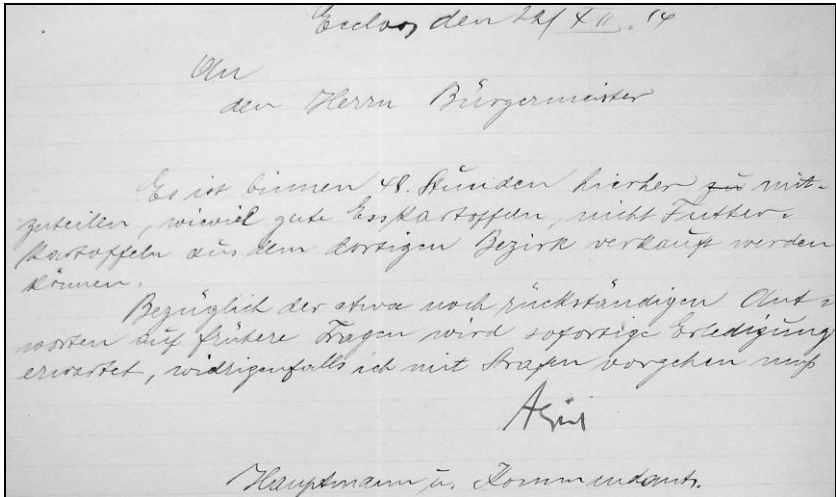 Eecloo, den 22/XII. 14
An
den Herrn Bürgermeister
Es ist binnen 48. Stunden hierher zu mit-
zuteilen, wieviel gute Esskartoffeln, nicht Futter-
kartoffeln aus dem dortigen Bezirk verkauft werden
können.
Bezüglich der etwa noch rückständigen Ant-
worten auf frühere Fragen wird sofortige Erledigung
erwartet, widrigenfalls ich mit Strafen vorgehen muß
Hauptmann u. Kommandant.